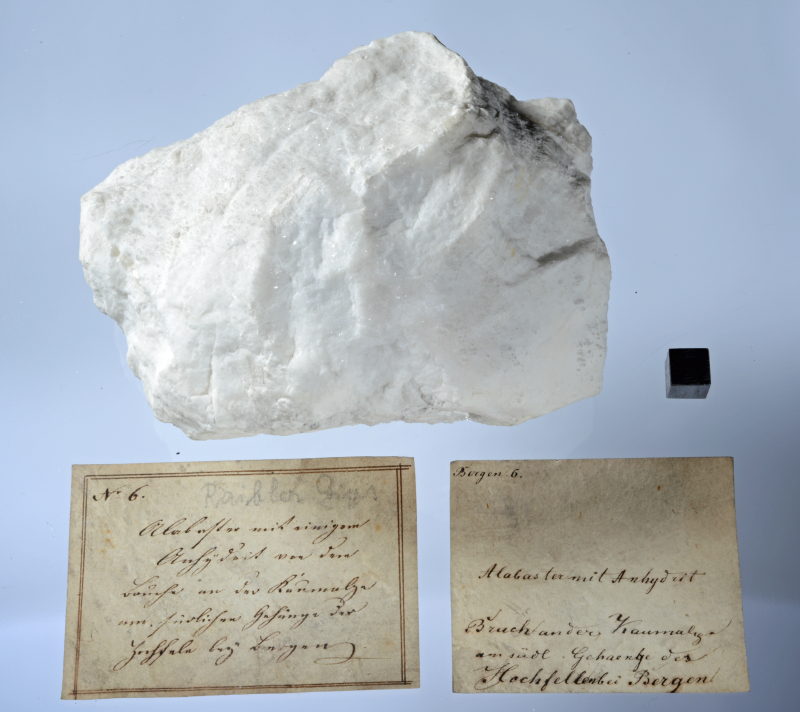 No 6.
Raibler Gips
Alabaster mit einigem
Anhÿdrit von dem
Bruche an der Kaumalpe
am südlichen Gehänge des
Hochfeln beÿ Bergen
Bergen 6.
Alabaster mit Anhydrit
Bruch an der Kaumalpe
am südl. Gehaenge des
Hochfellen bei Bergen